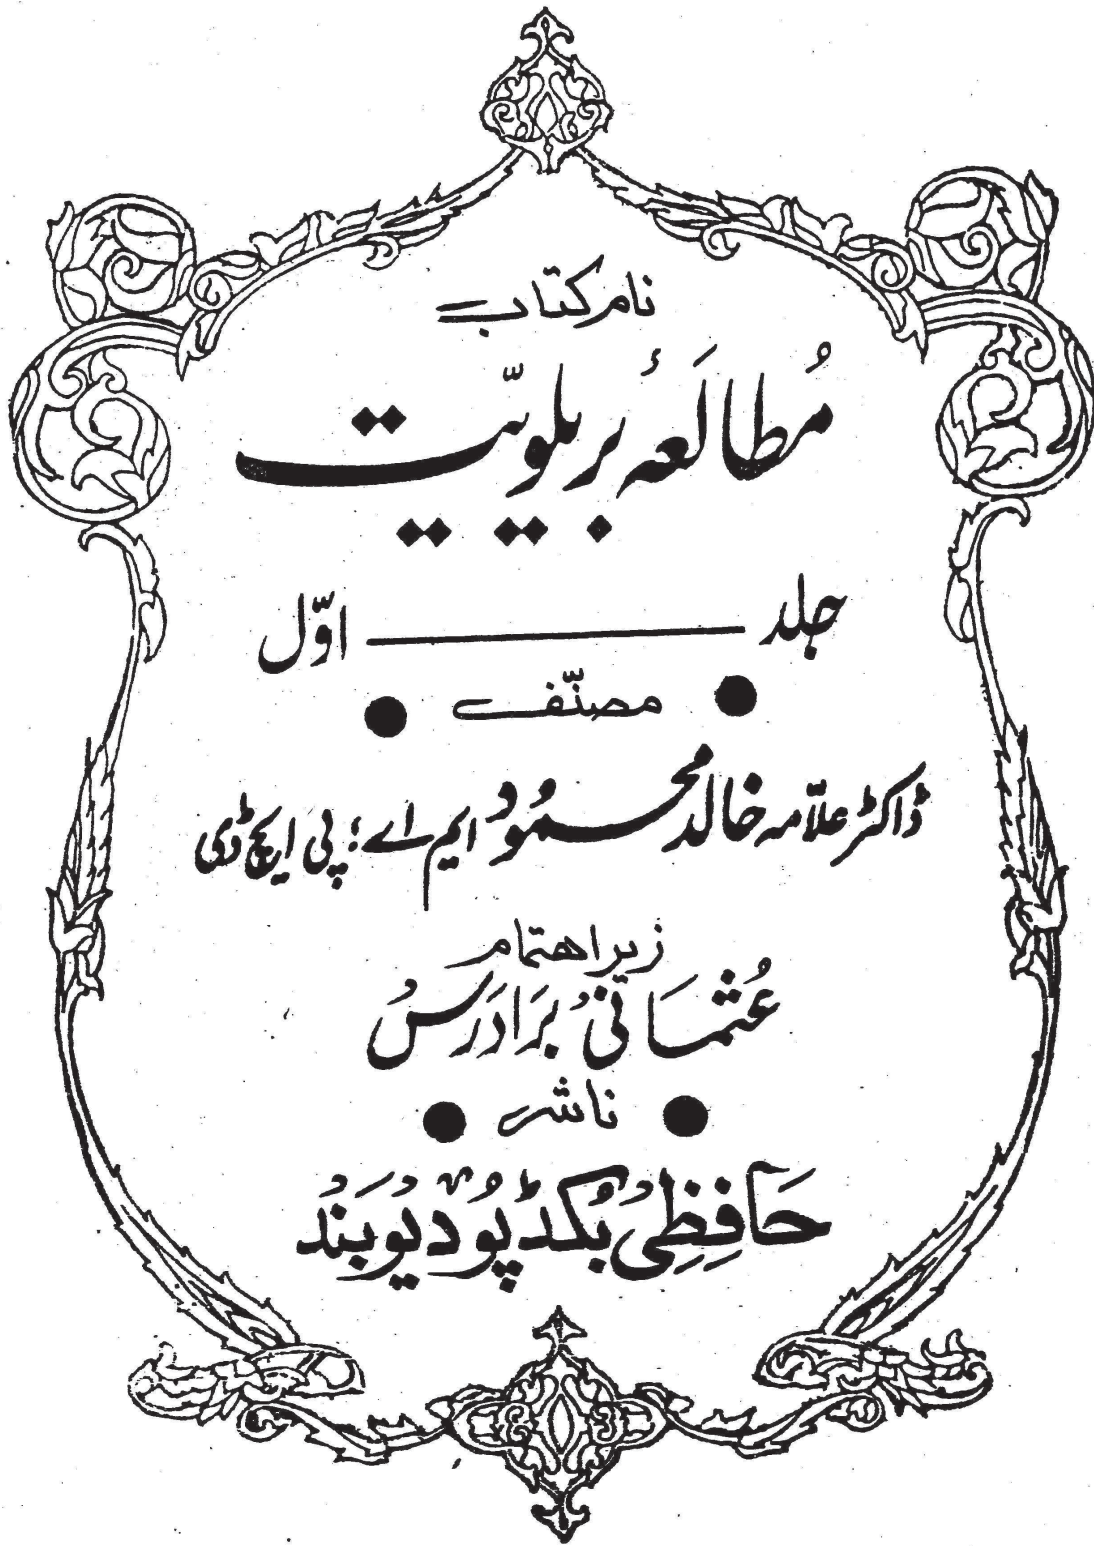 نام کتاب
مُطالَعۂ بریلویّت
جلد ـــــــ اوّل
● مصنّف ●
ڈاکٹر علاّمہ خالد محمُود ایم اے؛ پی ایچ ڈی
زیر اہتمام
عُثمَانی بَرَادَرسُ
● ناشر ●
حَافِظِی بُکڈپُو دیُوبَند